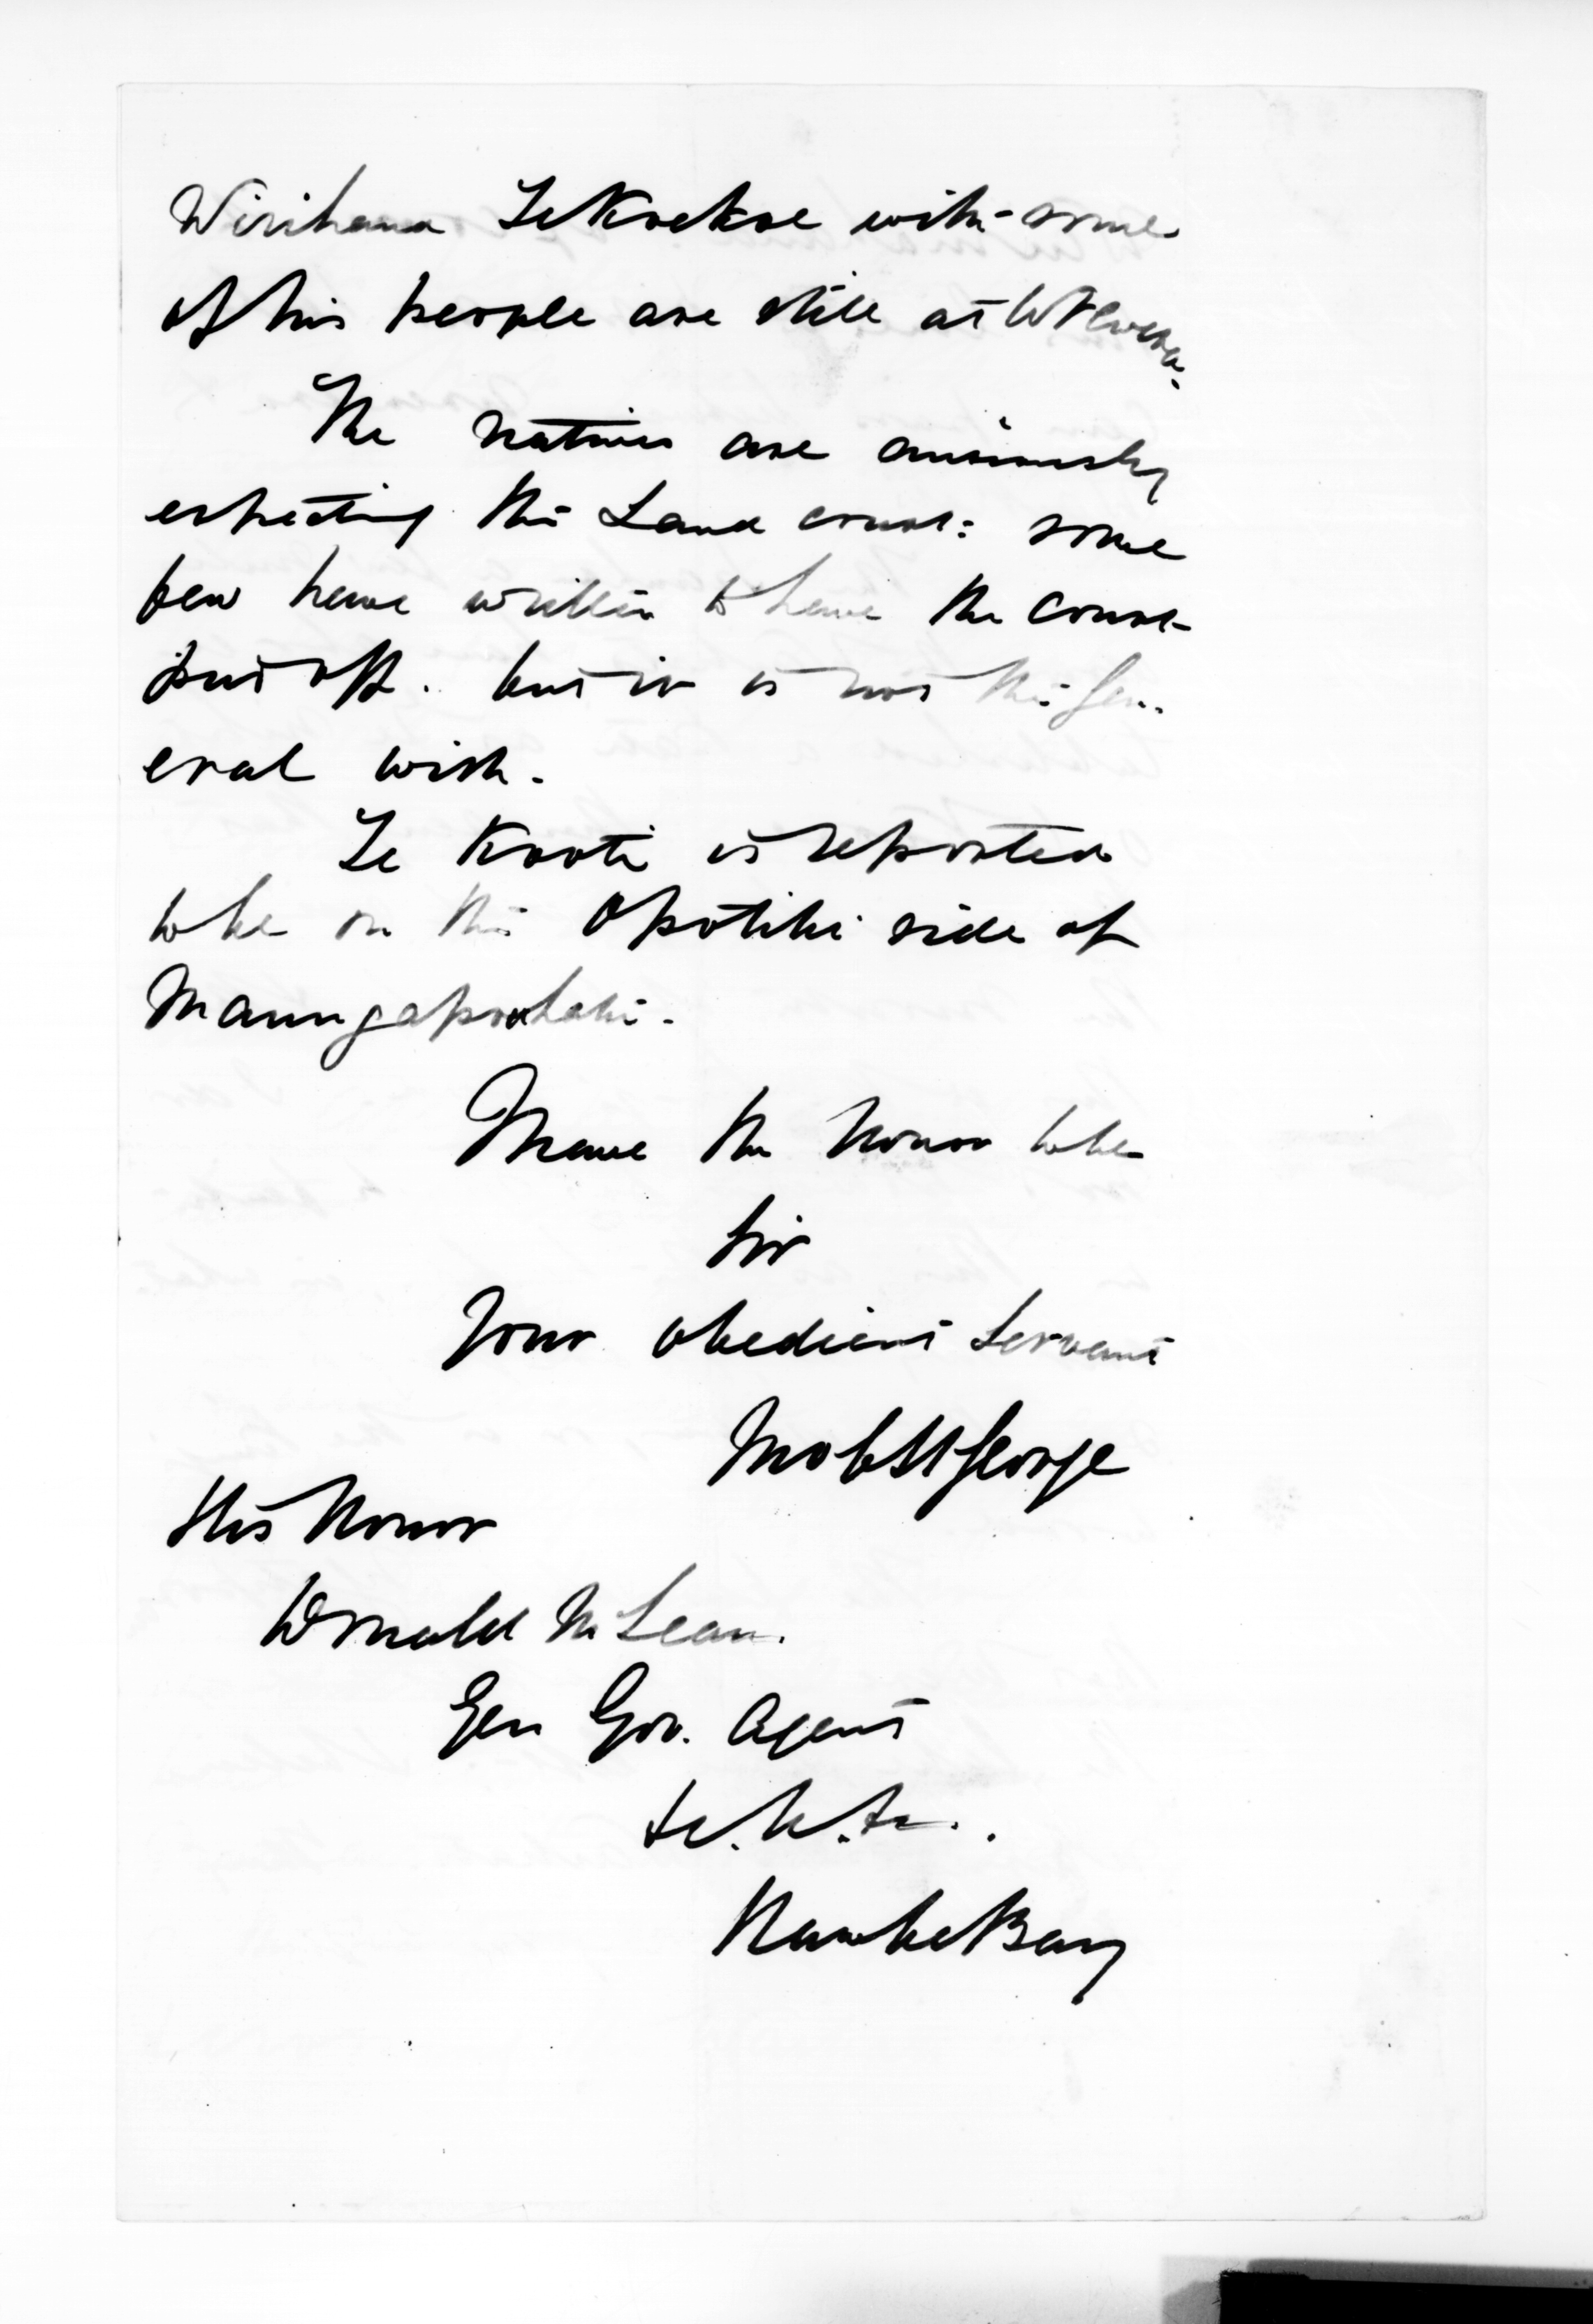 Wirihana Te Koekoe with some
of his people are still at
The natives are anxiously
expecting the Land court: some
few have written to have the court
put off. but it is not the gen-
eral wish.
Te Kooti is reported
to be on the Opotiki side of
Maungapowhatu.
I have the honor to be
Sir
Your obedient Servant
George
His Honor
Donald McLean.
Gen Gov. Agent
&c. &c. &c.
Hawke Bay